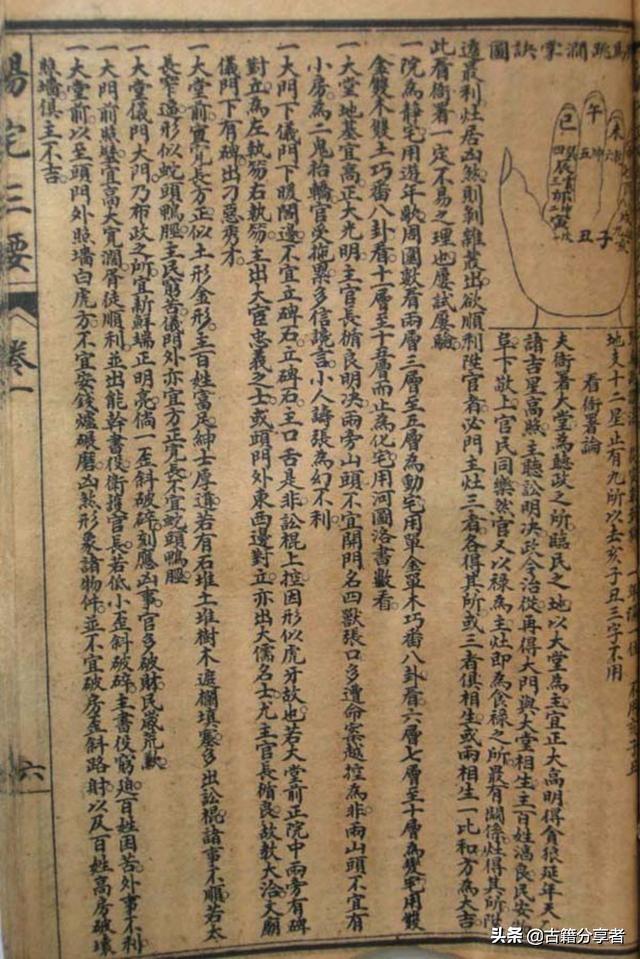 馬跳澗掌訣圖
午
未
巳
四
五
坤
六
辰
三
卯
二
寅
丑
子
地支十二星止有九所以去亥子丑三字不用
看衙署論
夫衙署大堂為聽政之所臨民之地以大堂為主宜正大高明得貪狼延年天
諸吉星高照主聽訟明决政令治從再得大門與大堂相生主百姓漓良民安
阜下敬上官民同樂然官又以祿為主灶即為食祿之所最有關係灶得其所陞
遷最利灶居凶煞則剝雜叢出欲順利陞官者必門主灶三者各得其所或三者俱相生或兩相生一比和方為大吉
此看衙署一定不易之理也屢試屢驗
一院為靜宅用遊年歌周圍數看兩層三層至五層為動宅用單金單木巧番八卦看六層七層至十層為變宅用雙
金雙木雙土巧番八卦看十一層至十五層而止為化宅用河圖洛書數看
一大堂地基宜高正大光明主官長循良明决兩旁山頭不宜開門名四獸張口多遭命案越控為非兩山頭不宜有
小房為二鬼抬轎官受拖累多信讒言小人譸張為幻不利
一大門下儀門下暖閣邊不宜立碑石立碑石主口舌是非訟棍上控因形似虎牙故也若大堂前正院中兩旁有碑
對立為左執笏右執笏主出大官忠義之士或頭門外東西邊對立亦出大儒名士尤主官長循良故教大洽文廟
儀門下有碑出刁惡秀才
一大堂前宜寬長方正似土形金形主百姓富足紳士厚道若有石堆土堆樹木遮欄填塞多出訟棍諸事不順若太
長窄邉形似蛇頭鴨脰主民窮苦儀門外亦宜方正寬長不宜蛇頭鴨脰
一大堂儀門大門乃布政之所宜新鮮端正明亮倘一歪斜破碎刻應凶事官多破財民歲荒歉
一大門前照墻宜高大寬濶胥徒順利並出能幹書役衛護官長若低小歪斜破碎主書役窮迫百姓困苦外事不利
一大堂前以至頭門外照墻白虎方不宜安錢爐碾磨凶煞形象諸物件並不宜破房歪斜路射以及百姓高房破壞
照墻俱主不吉
陽宅三要
卷一
六
头条 @古籍分享者